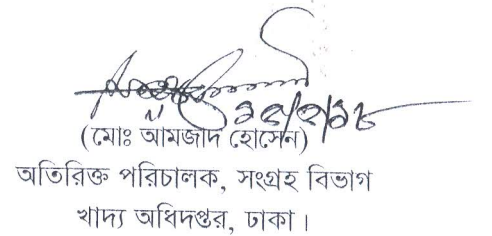 (মোঃ আমজাদ হোসেন)
অতিরিক্ত পরিচালক, সংগ্রহ বিভাগ
খাদ্য অধিদপ্তর, ঢাকা।